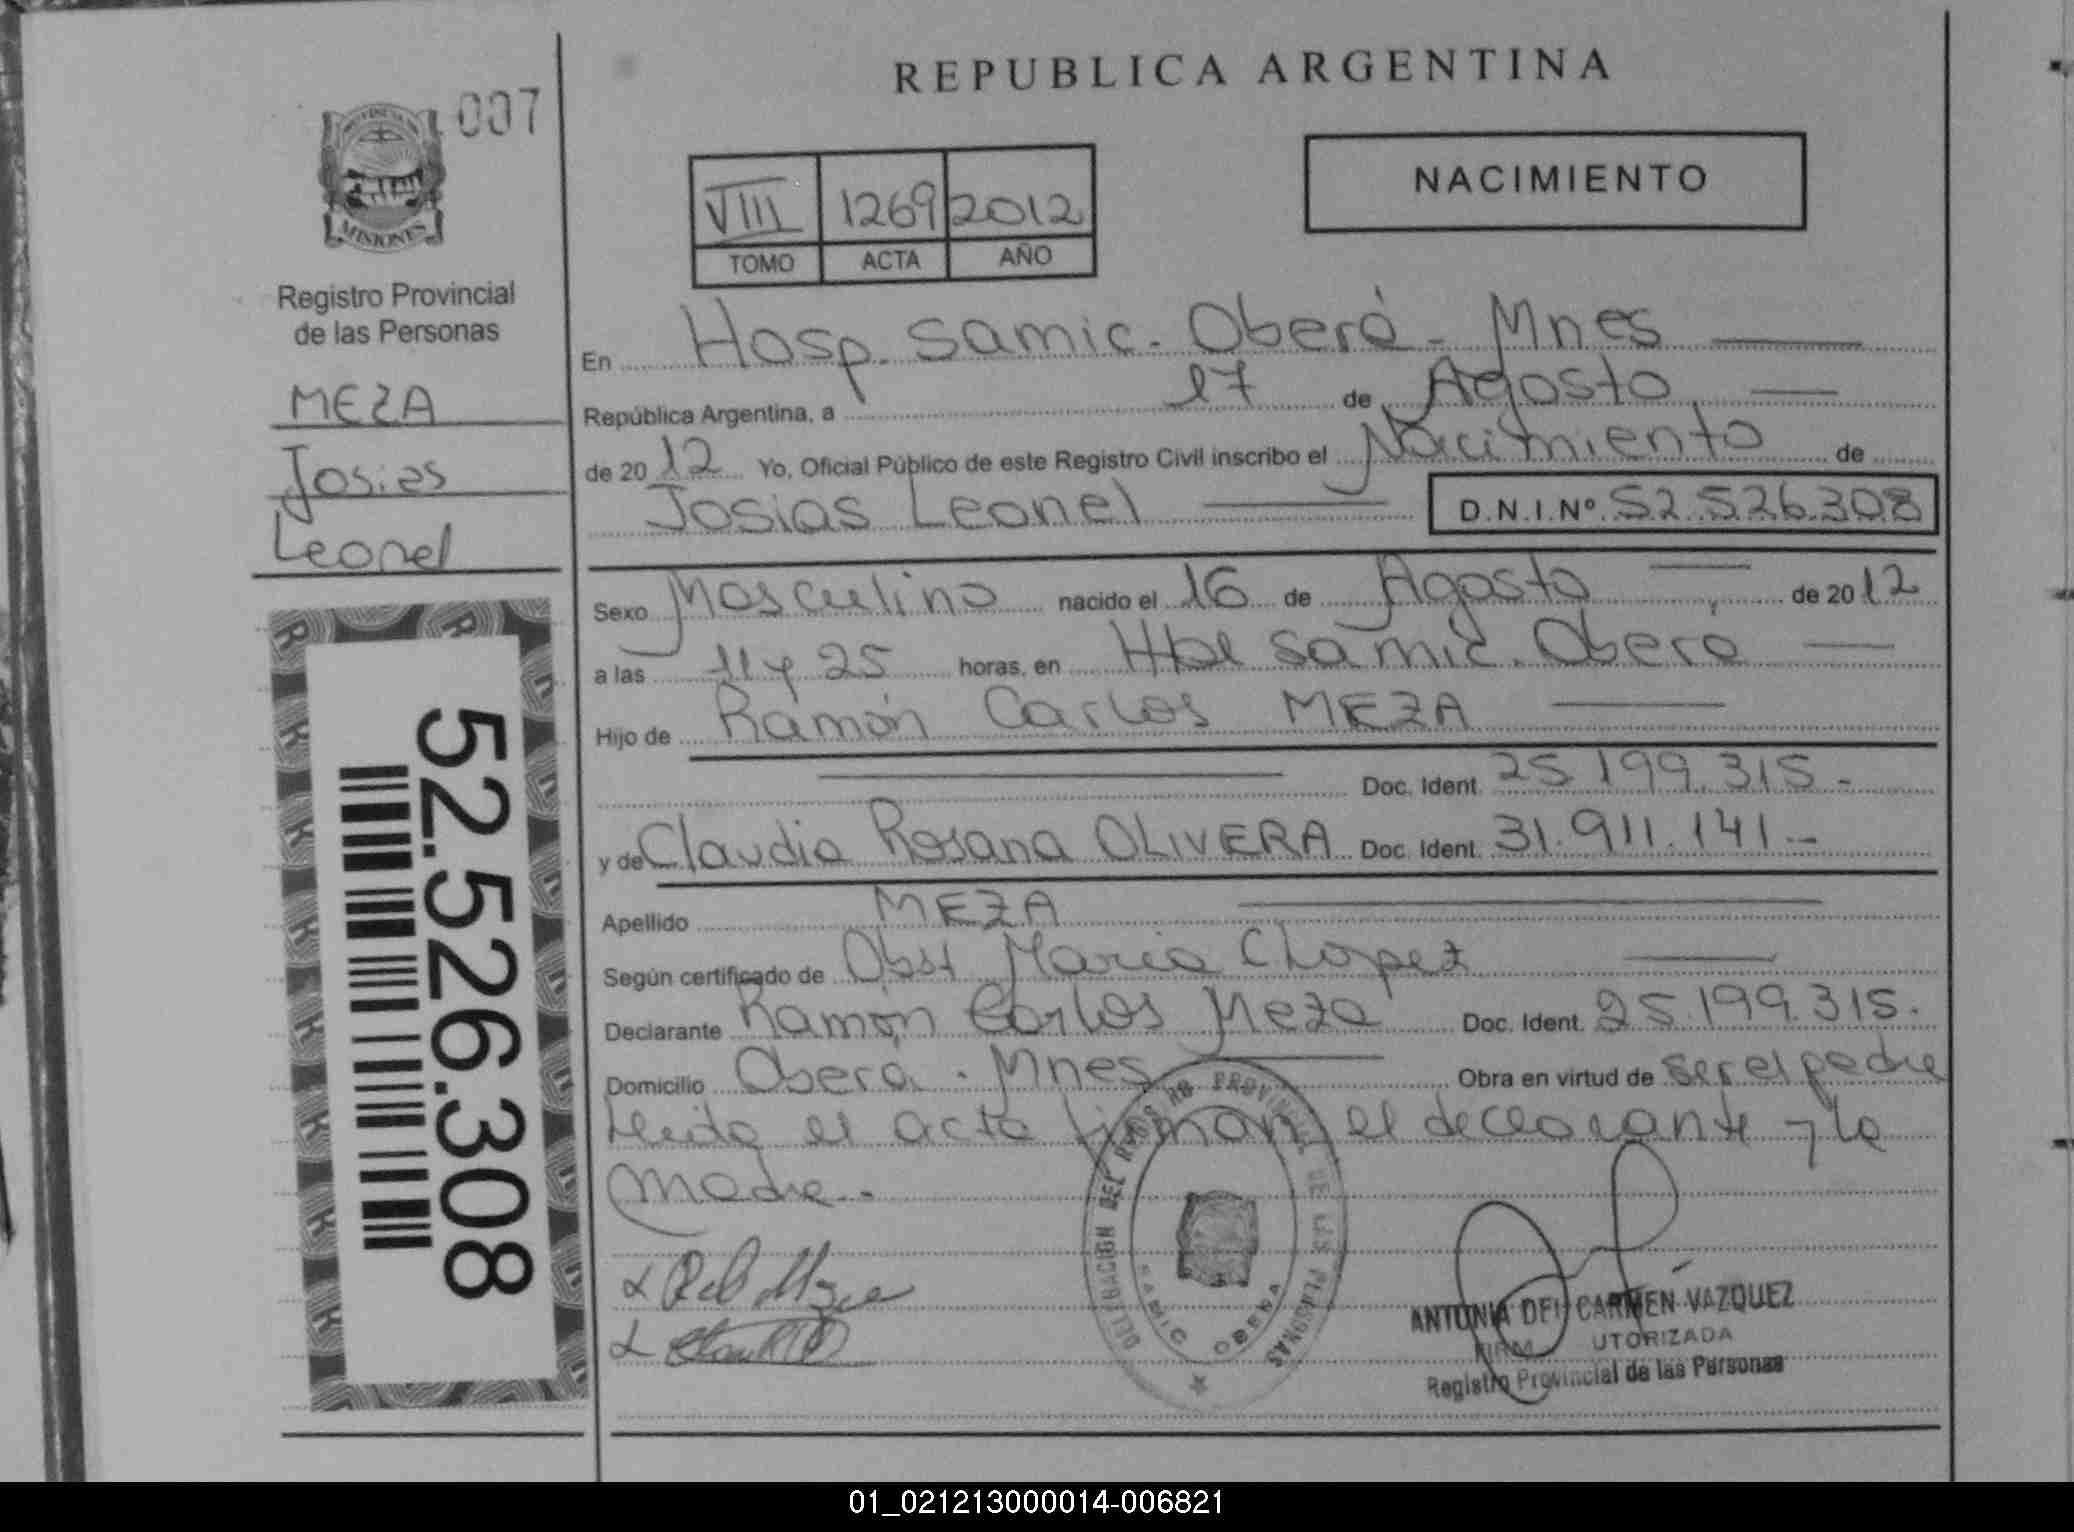 REPUBLICA ARGENTINA
007
MISIONES
Registro Provincial
de las Personas
MEZA
Josias
Leonel
52.526.308
VIII 1269 2012
TOMO ACTA AÑO
NACIMIENTO
En Hosp. Samic. Oberá - Mnes
República Argentina, a 17 de Agosto
de 2012 Yo, Oficial Público de este Registro Civil inscribo el Nacimiento de
Josias Leonel D.N.I.Nº. 52.526.308
Sexo Masculino nacido el 16 de Agosto de 2012
a las 11 y 25 horas, en Samic. Oberá
Hijo de Ramón Carlos MEZA
Doc. Ident. 25.199.315.-
y de Claudia Rosana OLIVERA Doc. Ident. 31.911.141.-
Apellido MEZA
Según certificado de Obst Maria C Lopez
Declarante Ramón Carlos Meza Doc. Ident. 25.199.315.
Domicilio Oberá. Mnes Obra en virtud de ser el padre
Leida el acta firman el declarante y la
madre.-
DELEGACION DEL REGISTRO PROVINCIAL DE LAS PERSONAS
SAMIC OBERA
ANTONIA DEL CARMEN VAZQUEZ
FIRMA AUTORIZADA
Registro Provincial de las Personas
01_021213000014-006821